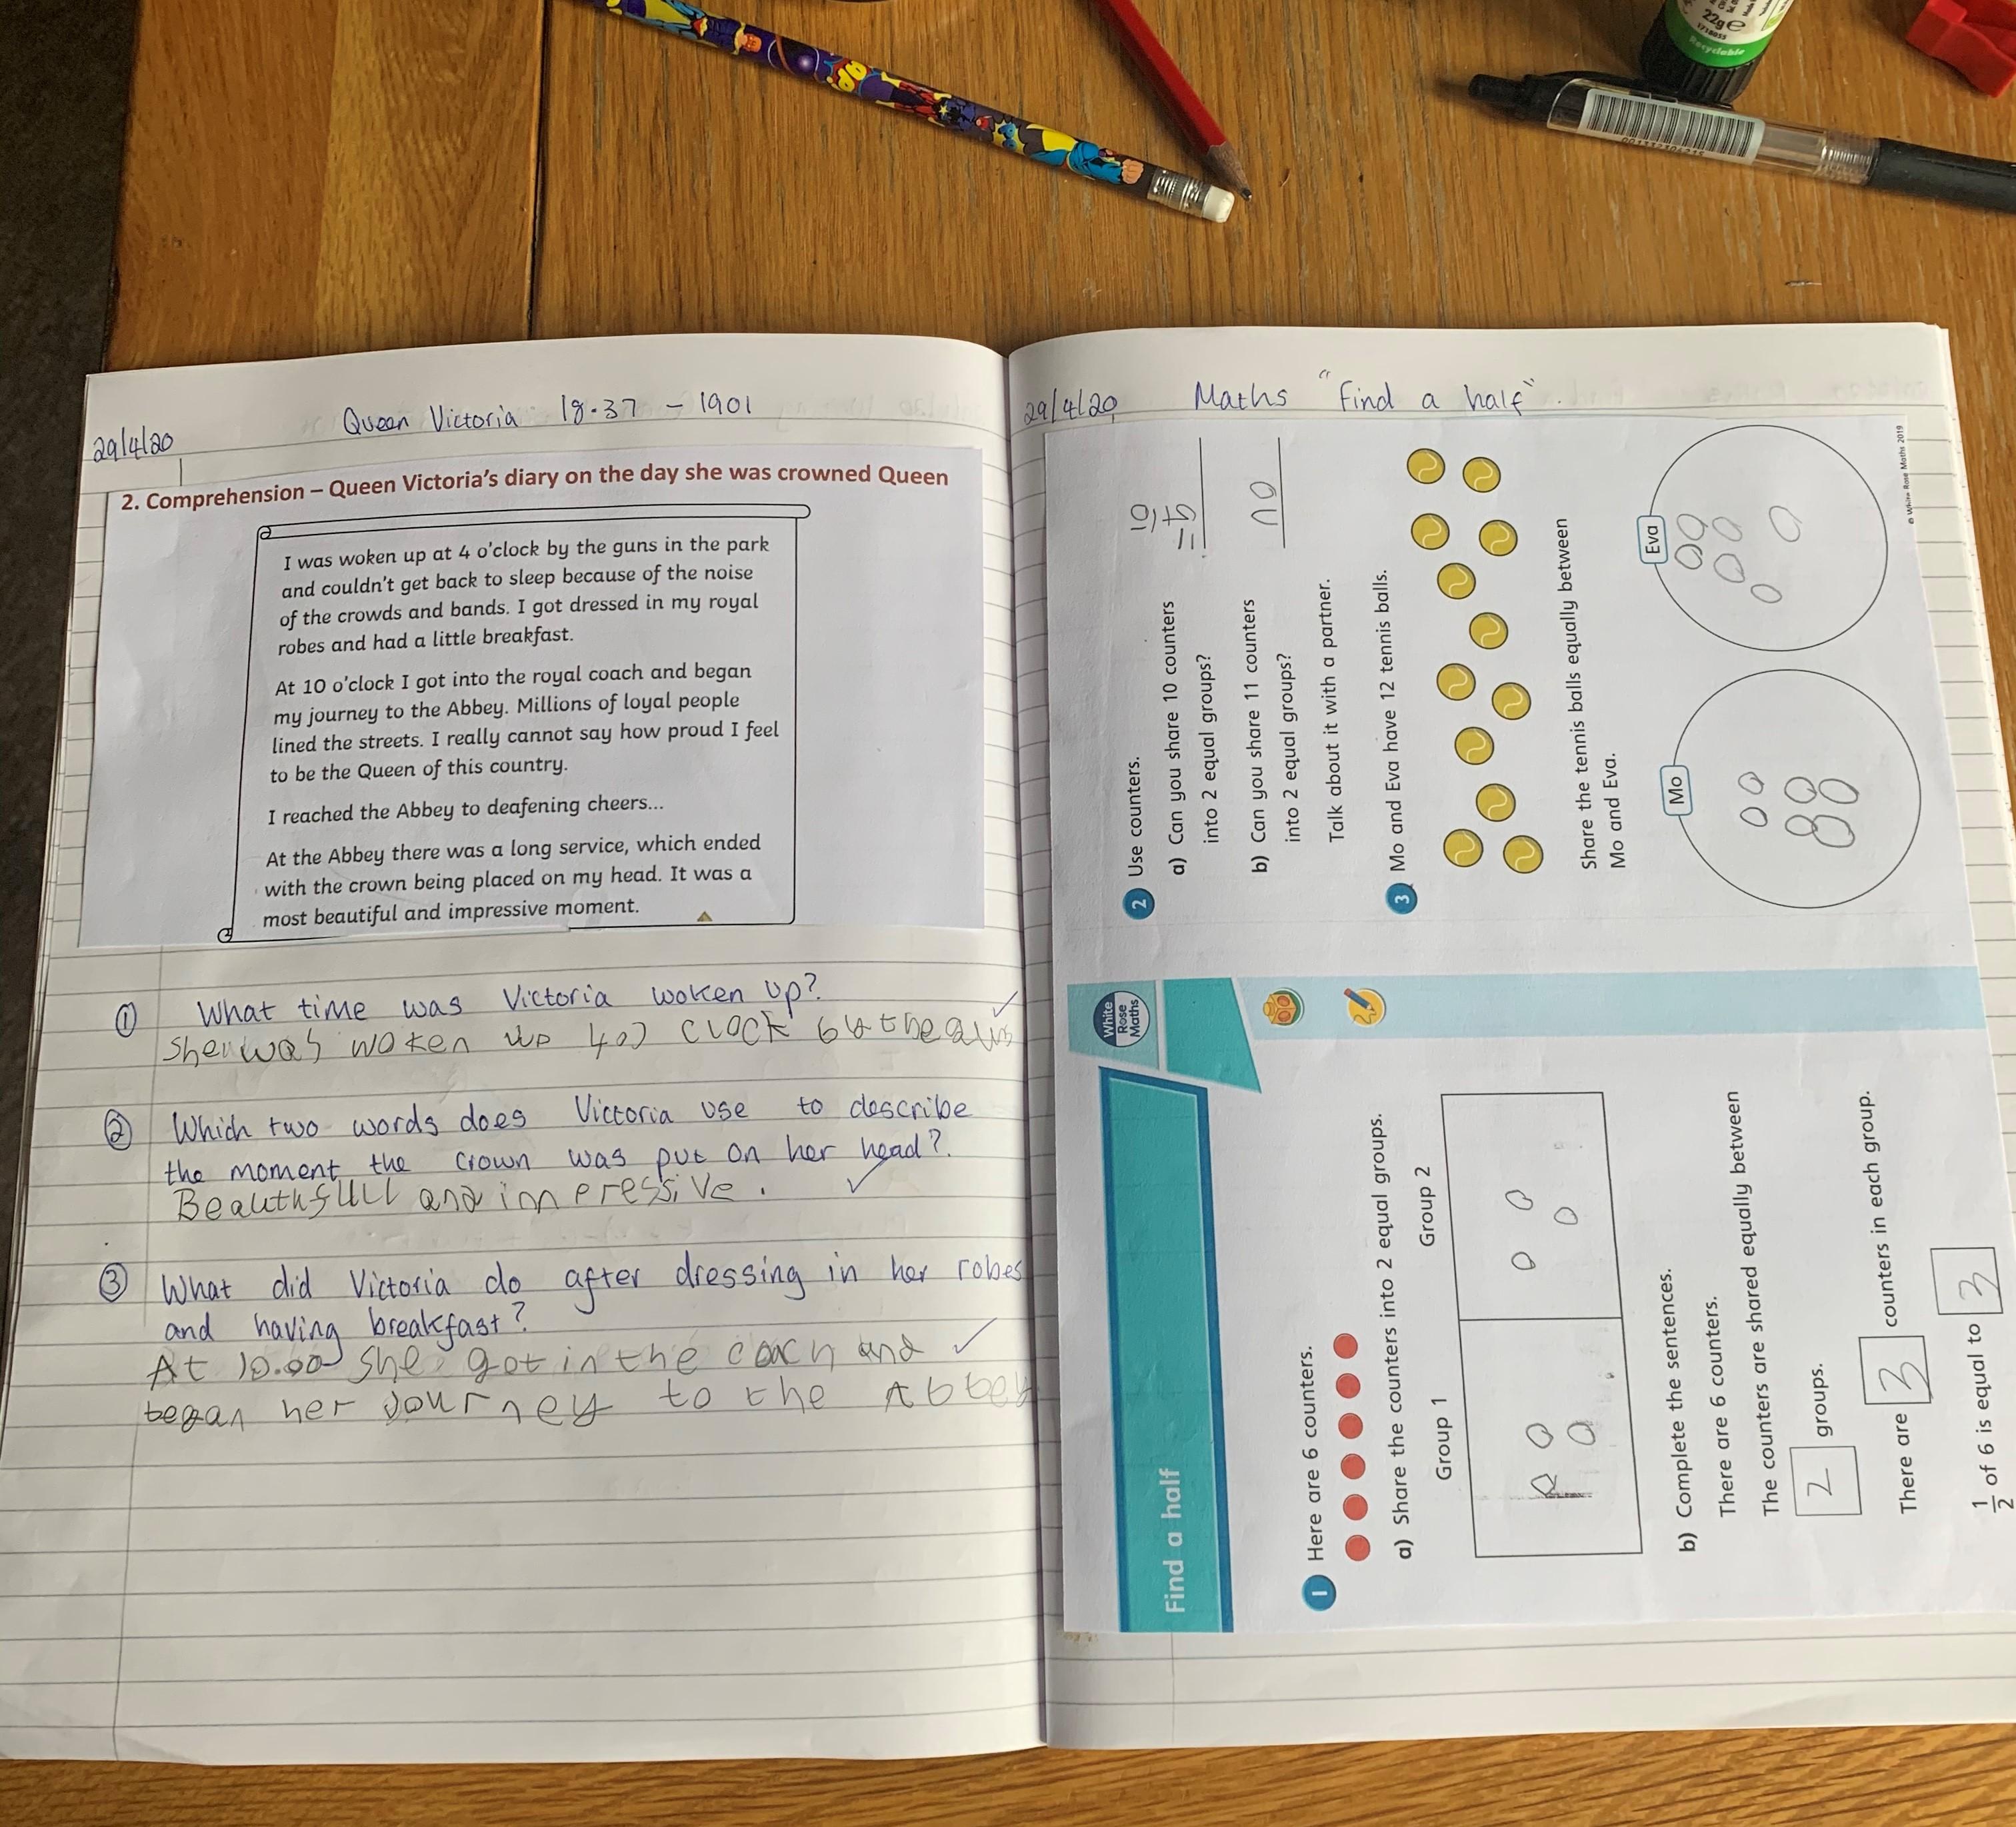 Queen Victoria 18.37 - 1901
29/4/20
2. Comprehension – Queen Victoria's diary on the day she was crowned Queen
I was woken up at 4 o'clock by the guns in the park
and couldn't get back to sleep because of the noise
of the crowds and bands. I got dressed in my royal
robes and had a little breakfast.
At 10 o'clock I got into the royal coach and began
my journey to the Abbey. Millions of loyal people
lined the streets. I really cannot say how proud I feel
to be the Queen of this country.
I reached the Abbey to deafening cheers...
At the Abbey there was a long service, which ended
with the crown being placed on my head. It was a
most beautiful and impressive moment.
1 What time was Victoria woken up?
she was woken up 4 o clock by the guns
2 Which two words does Victoria use to describe
the moment the crown was put on her head?
and impressive.
3 What did Victoria do after dressing in her robes
and having breakfast?
At 10.00 she got in the coach and
began her journey to the Abbey
29/4/20 Maths "find a half".
White
Rose
Maths
Find a half
1 Here are 6 counters.
a) Share the counters into 2 equal groups.
Group 1 Group 2
b) Complete the sentences.
There are 6 counters.
The counters are shared equally between
2 groups.
There are 3 counters in each group.
1/2 of 6 is equal to 3
2 Use counters.
a) Can you share 10 counters
into 2 equal groups?
b) Can you share 11 counters
into 2 equal groups? no
Talk about it with a partner.
3 Mo and Eva have 12 tennis balls.
Share the tennis balls equally between
Mo and Eva.
Mo Eva
© White Rose Maths 2019
22g e
Recyclable